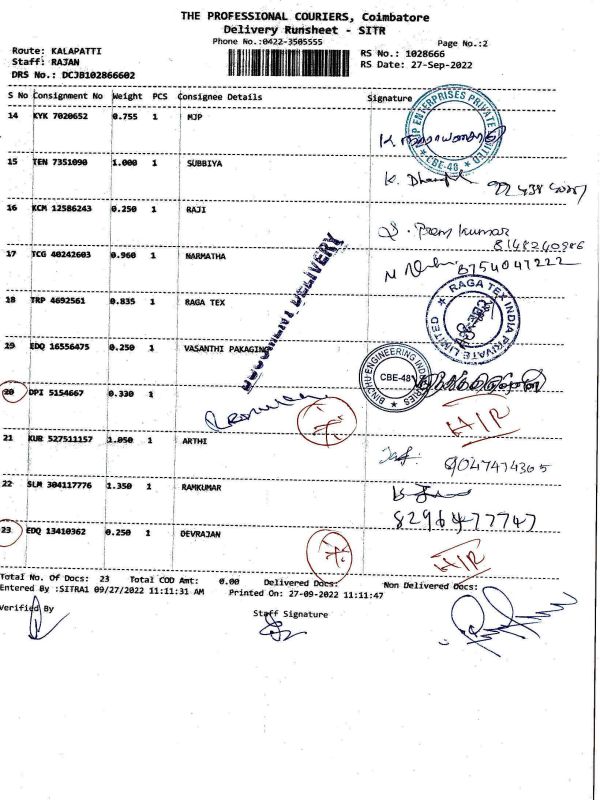 THE PROFESSIONAL COURIERS, Coimbatore
Delivery Runsheet - SITR
Phone No.:0422-3505555
Page No.:2
Route: KALAPATTI
RS No.: 1028666
Staff: RAJAN
RS Date: 27-Sep-2022
DRS No.: DCJB102866602
S No Consignment No Weight PCS Consignee Details Signature
14 KYK 7020652 0.755 1 MJP
P ENTERPRISES PRIVATE LIMITED
★ CBE-48 ★
15 TEN 7351090 1.000 1 SUBBIYA
16 KCM 12586243 0.250 1 RAJI
S. Prem kumar
8148240986
17 TCG 40242603 0.960 1 NARMATHA
8754047222
DOCUMENT DELIVERY
18 TRP 4692561 0.835 1 RAGA TEX
RAGA TEX INDIA PRIVATE LIMITED
19 EDQ 16556475 0.250 1 VASANTHI PAKAGING
ENGINEERING INDUSTRIES
CBE-48
20 DPI 5154667 0.330 1
H/R
21 KUB 527511157 1.050 1 ARTHI
9047474305
22 SLM 304117776 1.350 1 RAMKUMAR
8296477747
23 EDQ 13410362 0.250 1 DEVRAJAN
H/R
Total No. Of Docs: 23 Total COD Amt: 0.00 Delivered Docs: Non Delivered Docs:
Entered By :SITRA1 09/27/2022 11:11:31 AM Printed On: 27-09-2022 11:11:47
Verified By Staff Signature